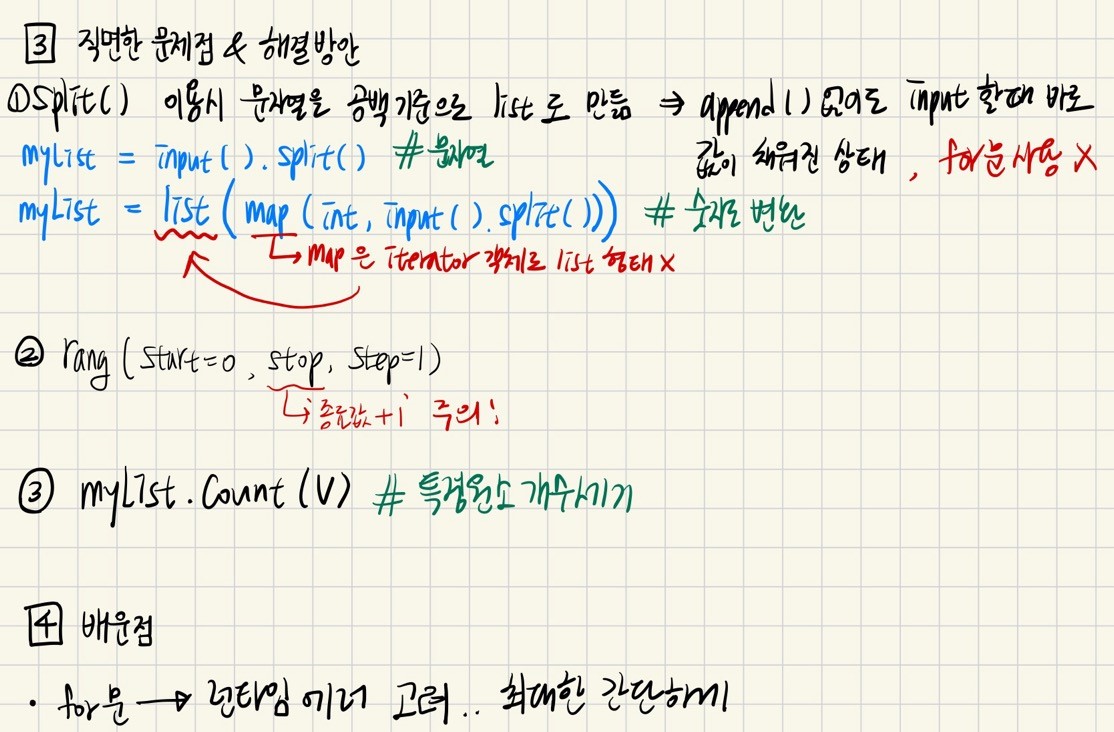 3 직면한 문제점 & 해결방안
① split() 이용시 문자열을 공백 기준으로 list로 만듦 ⇒ append() 없이도 input 할때 바로
값이 채워진 상태, for문 사용 X
myList = input().split() # 문자열
myList = list(map(int, input().split())) # 숫자로 변환
↳ map은 iterator 객체로 list 형태 X
② rang(start=0, stop, step=1)
↳ '종료값+1' 주의!
③ myList.count(V) # 특정원소 개수세기
4 배운점
· for문 → 런타임 에러 고려.. 최대한 간단하게